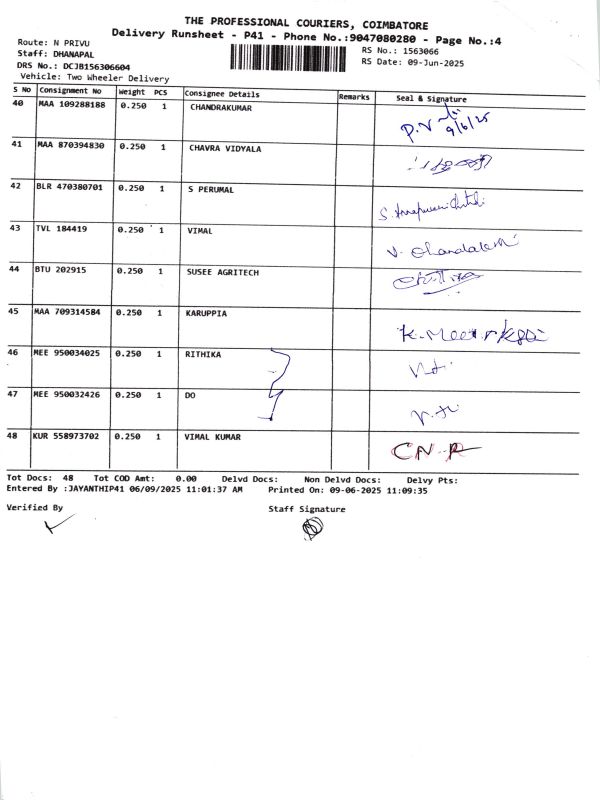 THE PROFESSIONAL COURIERS, COIMBATORE
Delivery Runsheet - P41 - Phone No.:9047080280 - Page No.:4
Route: N PRIVU
Staff: DHANAPAL
DRS No.: DCJB156306604
Vehicle: Two Wheeler Delivery
RS No.: 1563066
RS Date: 09-Jun-2025
S No Consignment No Weight PCS Consignee Details Remarks Seal & Signature
40 MAA 109288188 0.250 1 CHANDRAKUMAR 9/6/25
41 MAA 870394830 0.250 1 CHAVRA VIDYALA
42 BLR 470380701 0.250 1 S PERUMAL
43 TVL 184419 0.250 1 VIMAL
44 BTU 202915 0.250 1 SUSEE AGRITECH
45 MAA 709314584 0.250 1 KARUPPIA
46 MEE 950034025 0.250 1 RITHIKA
47 MEE 950032426 0.250 1 DO
48 KUR 558973702 0.250 1 VIMAL KUMAR
Tot Docs: 48 Tot COD Amt: 0.00 Delvd Docs: Non Delvd Docs: Delvy Pts:
Entered By :JAYANTHIP41 06/09/2025 11:01:37 AM Printed On: 09-06-2025 11:09:35
Verified By Staff Signature